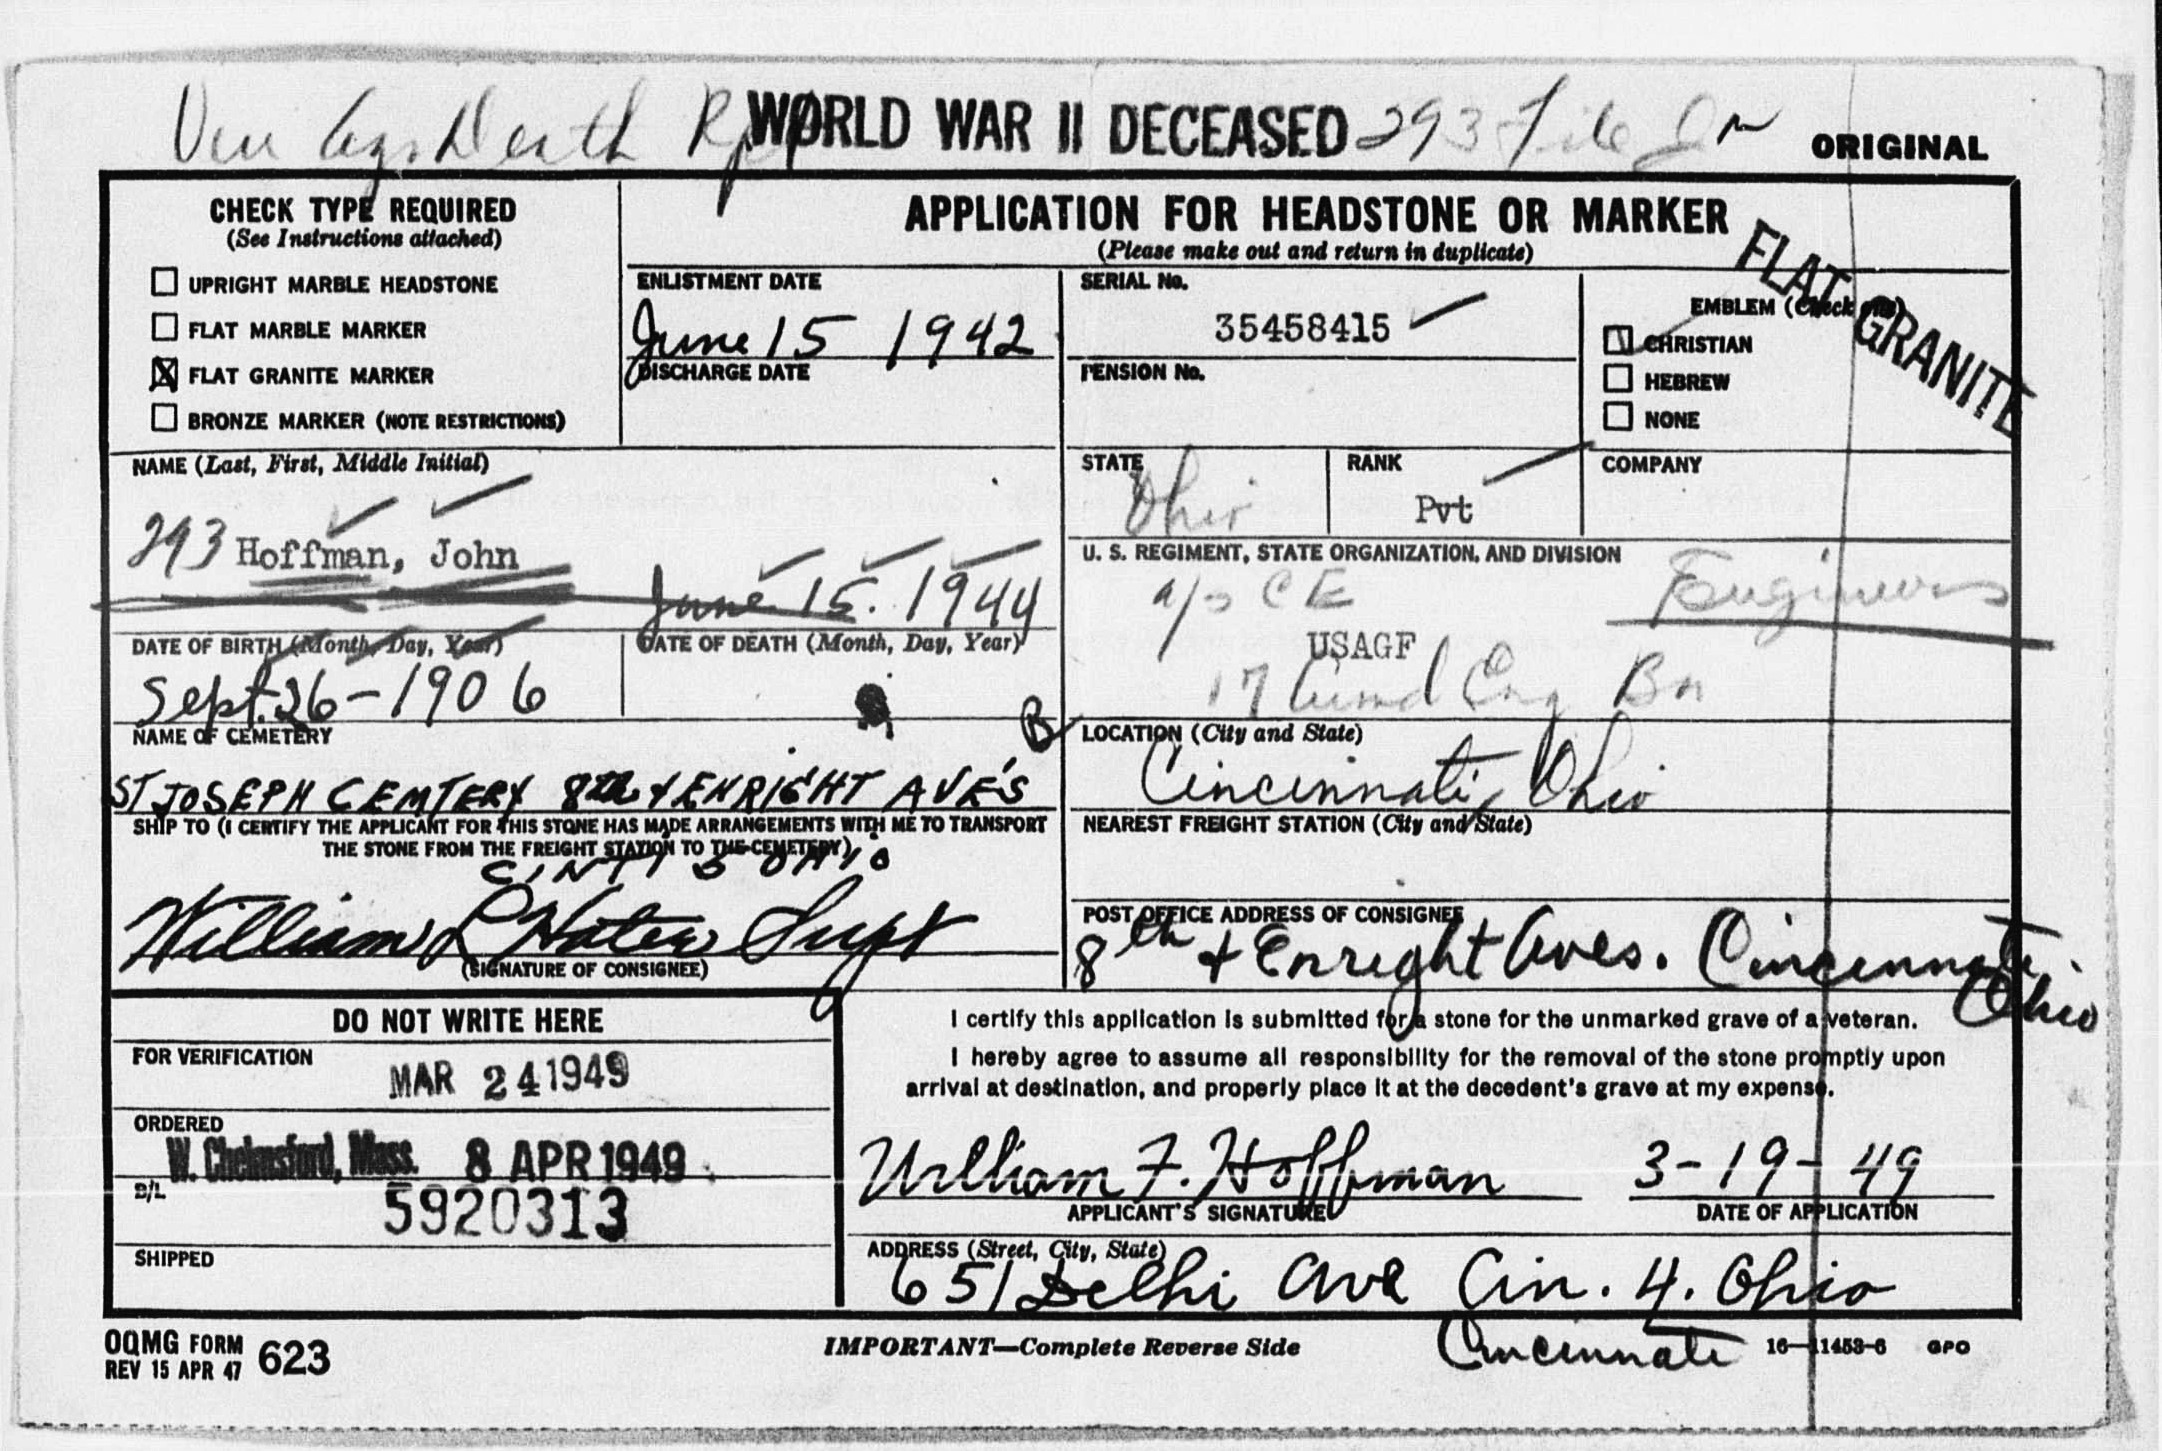 Ven Agn Death Rpt WORLD WAR II DECEASED 293 File
ORIGINAL
CHECK TYPE REQUIRED
(See Instructions attached)
☐ UPRIGHT MARBLE HEADSTONE
☐ FLAT MARBLE MARKER
☒ FLAT GRANITE MARKER
☐ BRONZE MARKER (NOTE RESTRICTIONS)
APPLICATION FOR HEADSTONE OR MARKER
(Please make out and return in duplicate)
FLAT GRANITE
ENLISTMENT DATE
June 15 1942
DISCHARGE DATE
SERIAL No.
35458415
PENSION No.
EMBLEM (Check one)
☑ CHRISTIAN
☐ HEBREW
☐ NONE
NAME (Last, First, Middle Initial)
293 Hoffman, John
STATE
Ohio
RANK
Pvt
COMPANY
June 15. 1944
DATE OF BIRTH (Month, Day, Year)
Sept. 26-1906
DATE OF DEATH (Month, Day, Year)
U. S. REGIMENT, STATE ORGANIZATION, AND DIVISION
a/s CE Engineers
USAGF
17 Cmd Eng Bn
NAME OF CEMETERY
B
ST JOSEPH CEMTERY 8th & ENRIGHT AVE'S
LOCATION (City and State)
Cincinnati, Ohio
SHIP TO (I CERTIFY THE APPLICANT FOR THIS STONE HAS MADE ARRANGEMENTS WITH ME TO TRANSPORT
THE STONE FROM THE FREIGHT STATION TO THE CEMETERY)
CINTI 5 OHIO
William L Hater Supt
(SIGNATURE OF CONSIGNEE)
NEAREST FREIGHT STATION (City and State)
POST OFFICE ADDRESS OF CONSIGNEE
8th & Enright Aves. Cincinnati
Ohio
DO NOT WRITE HERE
FOR VERIFICATION
MAR 24 1949
ORDERED
W. Chelmsford, Mass. 8 APR 1949
B/L
5920313
SHIPPED
I certify this application is submitted for a stone for the unmarked grave of a veteran.
I hereby agree to assume all responsibility for the removal of the stone promptly upon
arrival at destination, and properly place it at the decedent's grave at my expense.
William F. Hoffman 3-19-49
APPLICANT'S SIGNATURE DATE OF APPLICATION
ADDRESS (Street, City, State)
651 Delhi Ave Cin. 4. Ohio
Cincinnati
OQMG FORM 623
REV 15 APR 47
IMPORTANT—Complete Reverse Side
16—11453-6 GPO